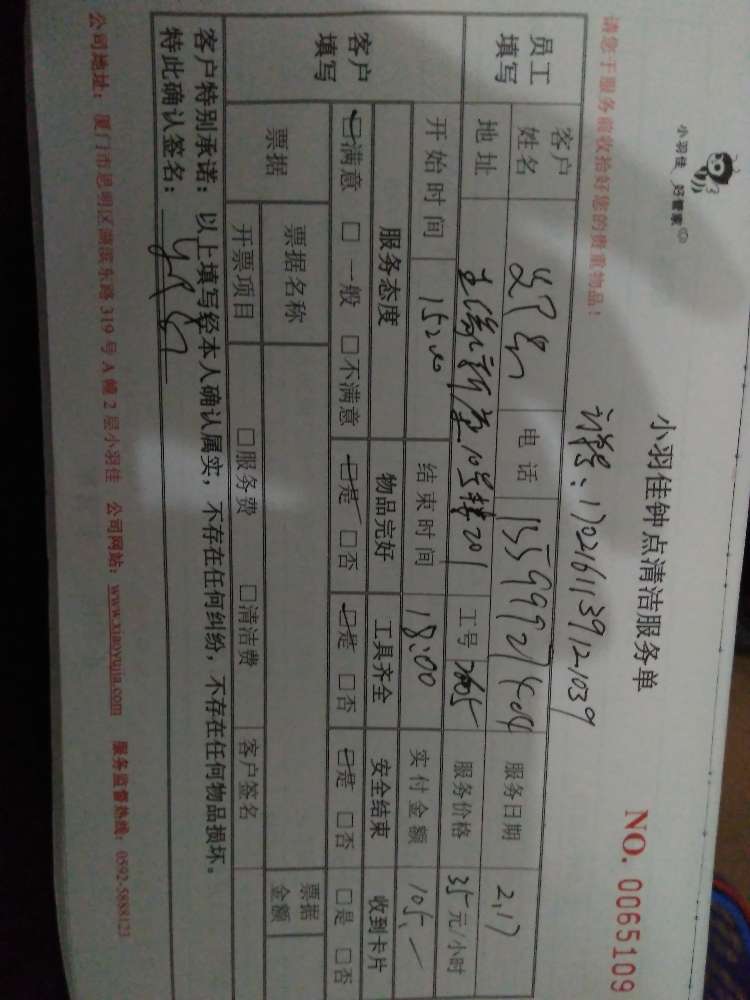 小羽佳 好管家
小羽佳钟点清洁服务单
NO. 0065109
请您于服务前收拾好您的贵重物品!
员工填写
客户姓名
电话
服务日期 2.17
地址 10号楼201
工号
服务价格 35元/小时
开始时间 15:00
结束时间 18:00
实付金额 105.—
客户填写
服务态度 物品完好 工具齐全 安全结束 收到卡片
☑满意 □一般 □不满意 ☑是 □否 ☑是 □否 ☑是 □否 □是 □否
票据
票据名称
票据金额
开票项目 □服务费 □清洁费 客户签名
客户特别承诺:以上填写经本人确认属实,不存在任何纠纷,不存在任何物品损坏。
特此确认签名:
公司地址:厦门市思明区湖滨东路319号A幢2层小羽佳 公司网站:www.xiaoyujia.com 服务监督热线:0592-5888123